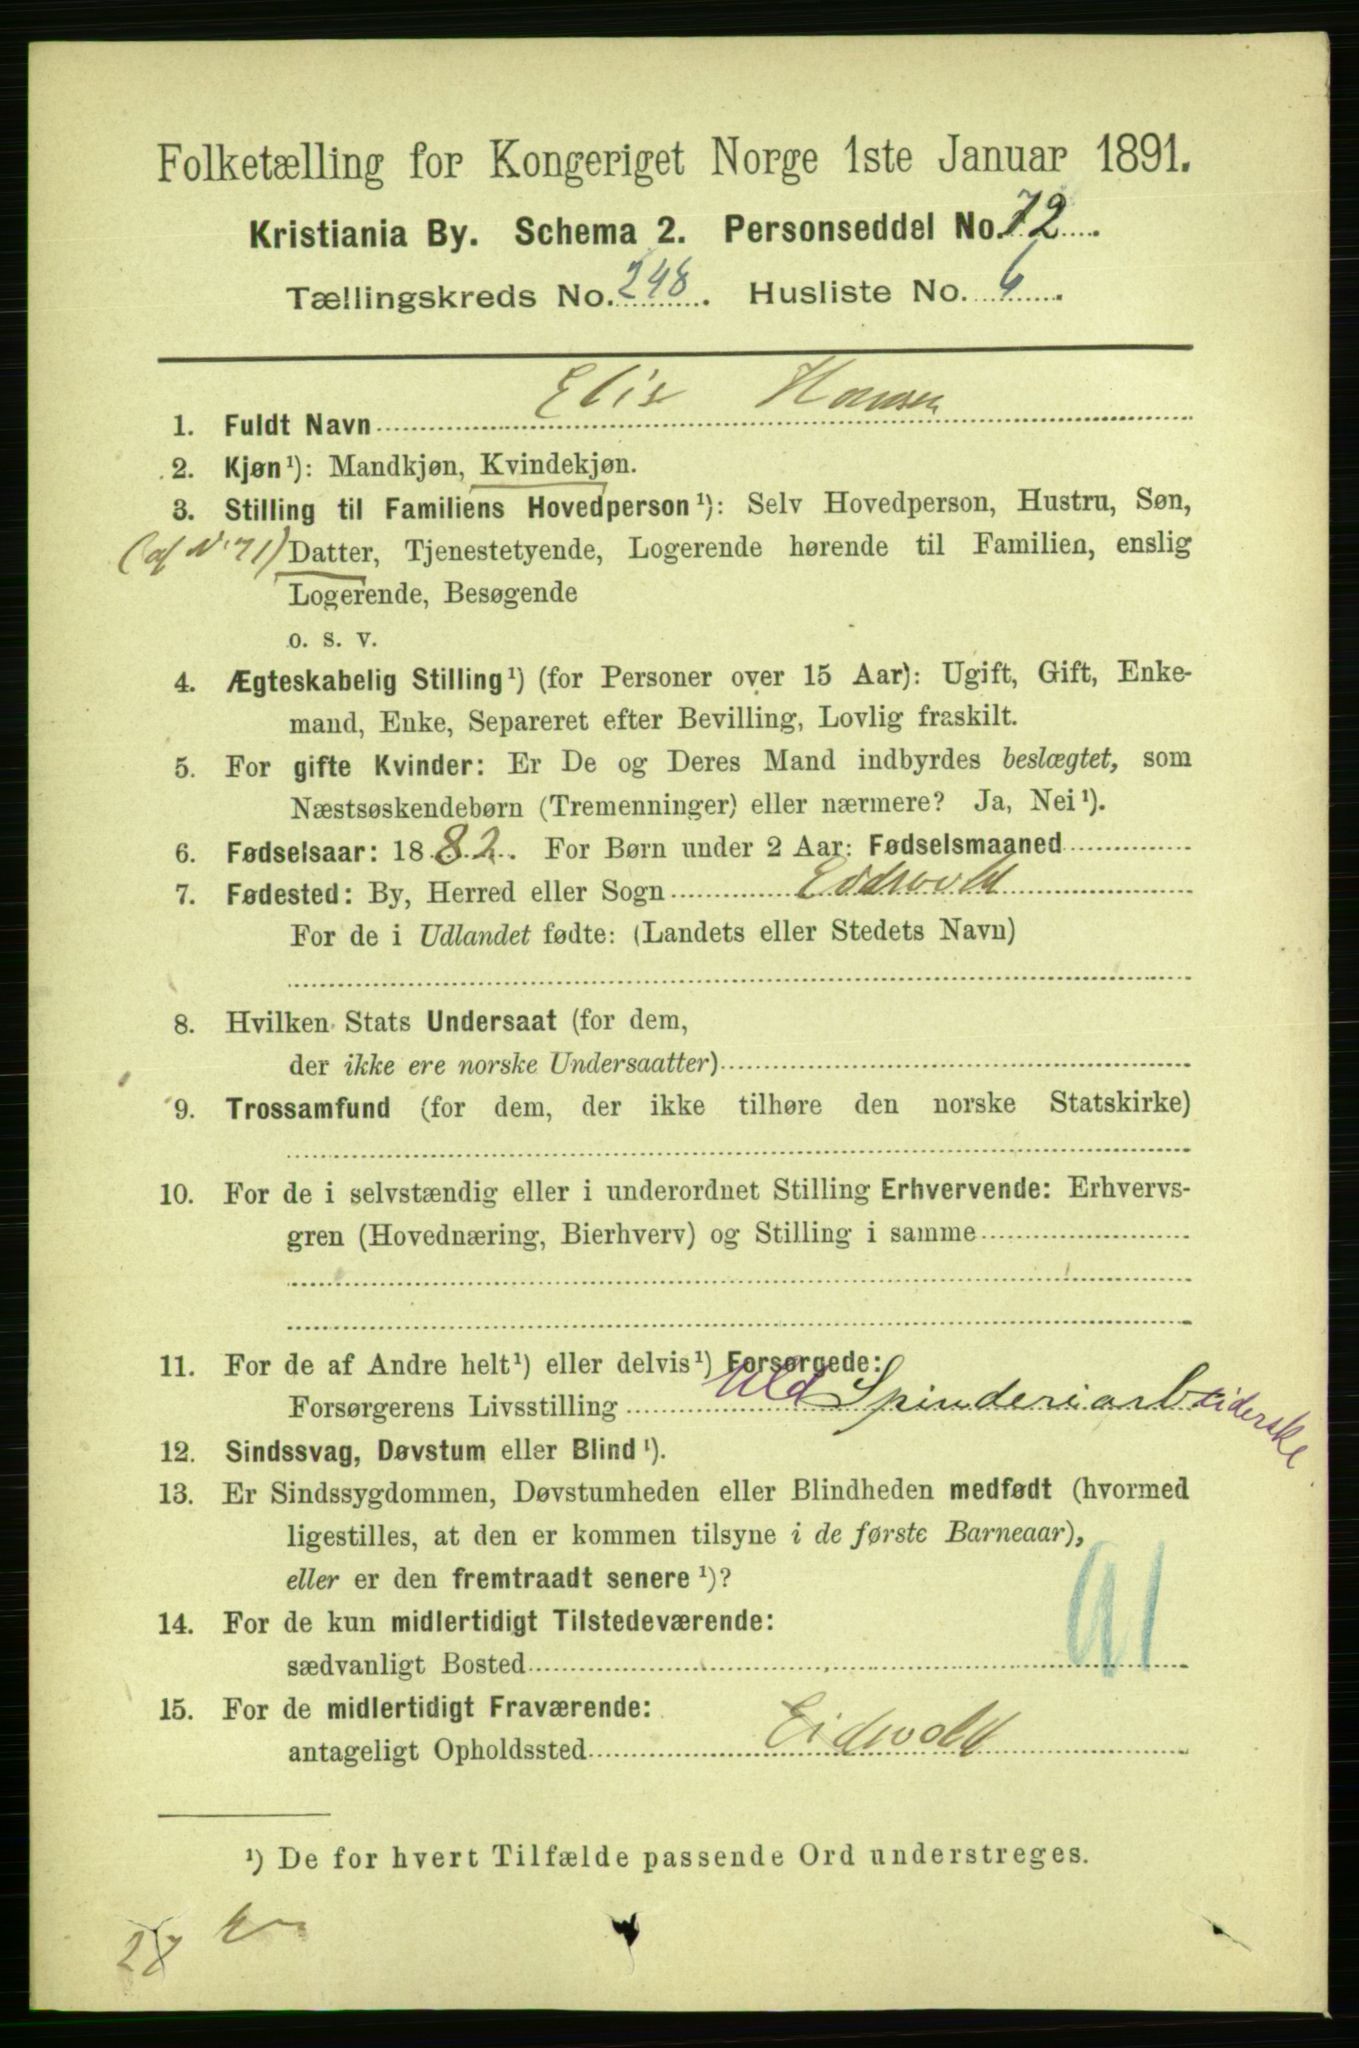 Folketælling for Kongeriget Norge 1ste Januar 1891.
Kristiania By. Schema 2. Personseddel No. 72
Tællingskreds No. 248. Husliste No. 6.
1. Fuldt Navn Elise Hansen
2. Kjøn¹): Mandkjøn, Kvindekjøn.
3. Stilling til Familiens Hovedperson¹): Selv Hovedperson, Hustru, Søn,
(af No 71) Datter, Tjenestetyende, Logerende hørende til Familien, enslig
Logerende, Besøgende
o. s. v.
4. Ægteskabelig Stilling¹) (for Personer over 15 Aar): Ugift, Gift, Enke-
mand, Enke, Separeret efter Bevilling, Lovlig fraskilt.
5. For gifte Kvinder: Er De og Deres Mand indbyrdes beslægtet, som
Næstsøskendebørn (Tremenninger) eller nærmere? Ja, Nei¹).
6. Fødselsaar: 1882. For Børn under 2 Aar: Fødselsmaaned
7. Fødested: By, Herred eller Sogn Eidsvold
For de i Udlandet fødte: (Landets eller Stedets Navn)
8. Hvilken Stats Undersaat (for dem,
der ikke ere norske Undersaatter)
9. Trossamfund (for dem, der ikke tilhøre den norske Statskirke)
10. For de i selvstændig eller i underordnet Stilling Erhvervende: Erhvervs-
gren (Hovednæring, Bierhverv) og Stilling i samme
11. For de af Andre helt¹) eller delvis¹) Forsørgede:
Forsørgerens Livsstilling Uld Spinderiarbeiderske
12. Sindssvag, Døvstum eller Blind¹).
13. Er Sindssygdommen, Døvstumheden eller Blindheden medfødt (hvormed
ligestilles, at den er kommen tilsyne i de første Barneaar),
eller er den fremtraadt senere¹)?
14. For de kun midlertidigt Tilstedeværende:
sædvanligt Bosted
91
15. For de midlertidigt Fraværende:
antageligt Opholdssted Eidsvold
¹) De for hvert Tilfælde passende Ord understreges.